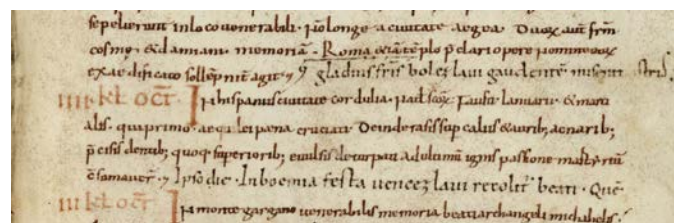 sepelierunt in loco venerabili. ñ longe a civitate aegea. Duox aut̄ frm̄
cosmę & damiani memoriā. Romę etiā tēplo p̄clari opere nomine eox
ex aedificato sollēpnit̄ agit
gladius fris bolezlaui gaudentē misit
IIII KL OCT̄. In hispanis civitate corduba. Nat̄ scox Fausti Ianuarii & marti
alis. qui primo aequlei pena cruciati. Deinde rasis sup̄ciliis & aurib; acnarib;
p̄cisis dentib; quoq; superiorib; evulsis deturpati ad ultimū ignis passione martyriū
Ipso die. In boemia festa uencezlaui recolit̄ beati. Quē
III KL OCT̄. In monte gargano venerabilis memoria beati archangeli michahelis.